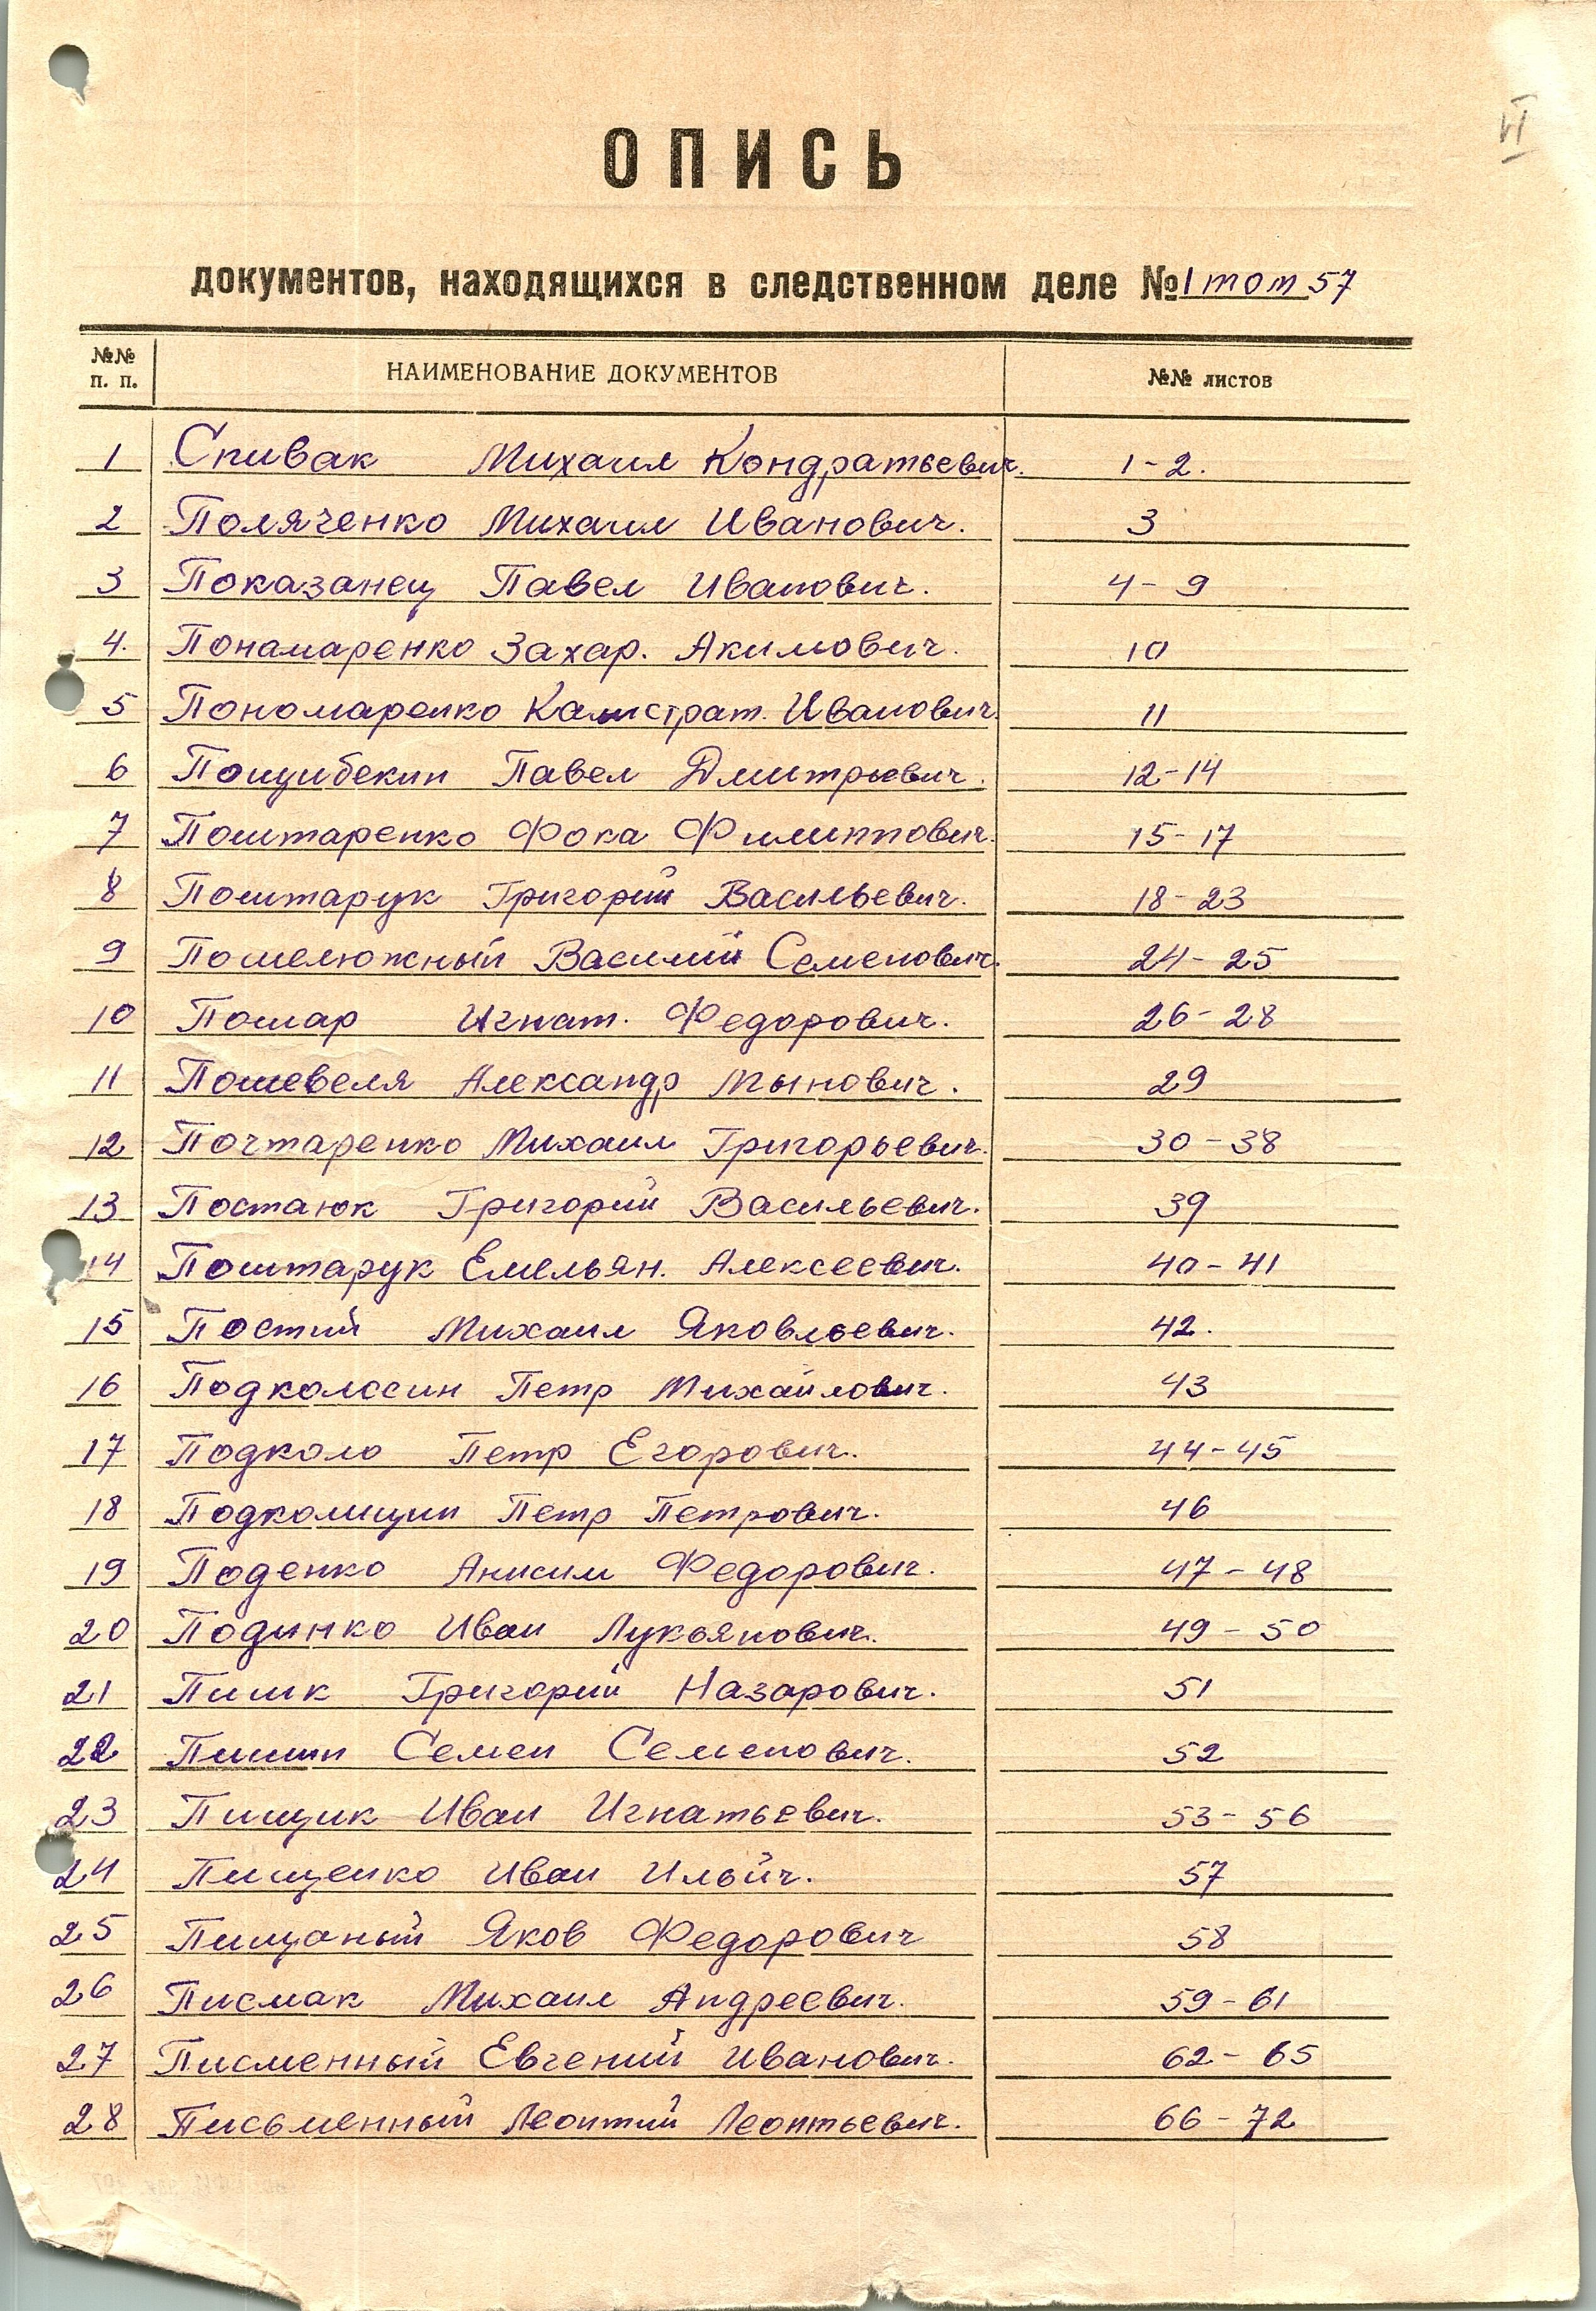 VI
ОПИСЬ
документов, находящихся в следственном деле № 1 том 57
№№ п. п. НАИМЕНОВАНИЕ ДОКУМЕНТОВ №№ листов
1 Спивак Михаил Кондратьевич. 1-2.
2 Поляченко Михаил Иванович. 3
3 Показанец Павел Иванович. 4-9
4. Понамаренко Захар. Акимович. 10
5 Пономаренко Калистрат. Иванович. 11
6 Пощибекин Павел Дмитриевич. 12-14
7 Поштаренко Фока Филиппович. 15-17
8 Поштарук Григорий Васильевич. 18-23
9 Пошелюжный Василий Семенович. 24-25
10 Пошар Игнат. Федорович. 26-28
11 Пошевеля Александр Мынович. 29
12 Почтаренко Михаил Григорьевич. 30-38
13 Постаюк Григорий Васильевич. 39
14 Поштарук Емельян. Алексеевич. 40-41
15 Постий Михаил Яковльевич. 42.
16 Подколосин Петр Михайлович. 43
17 Подколо Петр Егорович. 44-45
18 Подкомщин Петр Петрович. 46
19 Поденко Анисим Федорович. 47-48
20 Подинко Иван Лукьянович. 49-50
21 Пишк Григорий Назарович. 51
22 Пишин Семен Семенович. 52
23 Пищик Иван Игнатьевич. 53-56
24 Пищенко Иван Ильйч. 57
25 Пищаный Яков Федорович 58
26 Писмак Михаил Андреевич. 59-61
27 Писменный Евгений Иванович. 62-65
28 Письменный Леонтий Леонтьевич. 66-72